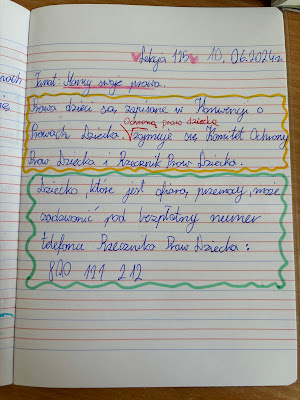 Lekcja 175 10.06.2024r.
Temat: Mamy swoje prawa.
Prawa dzieci są zapisane w Konwencji o
Ochroną praw dziecka
Prawach Dziecka. zajmuje się Komitet Ochrony
Praw Dziecka i Rzecznik Praw Dziecka.
Dziecko które jest ofiarą przemocy, może
zadzwonić pod bezpłatny numer
telefonu Rzecznika Praw Dziecka:
800 121 212